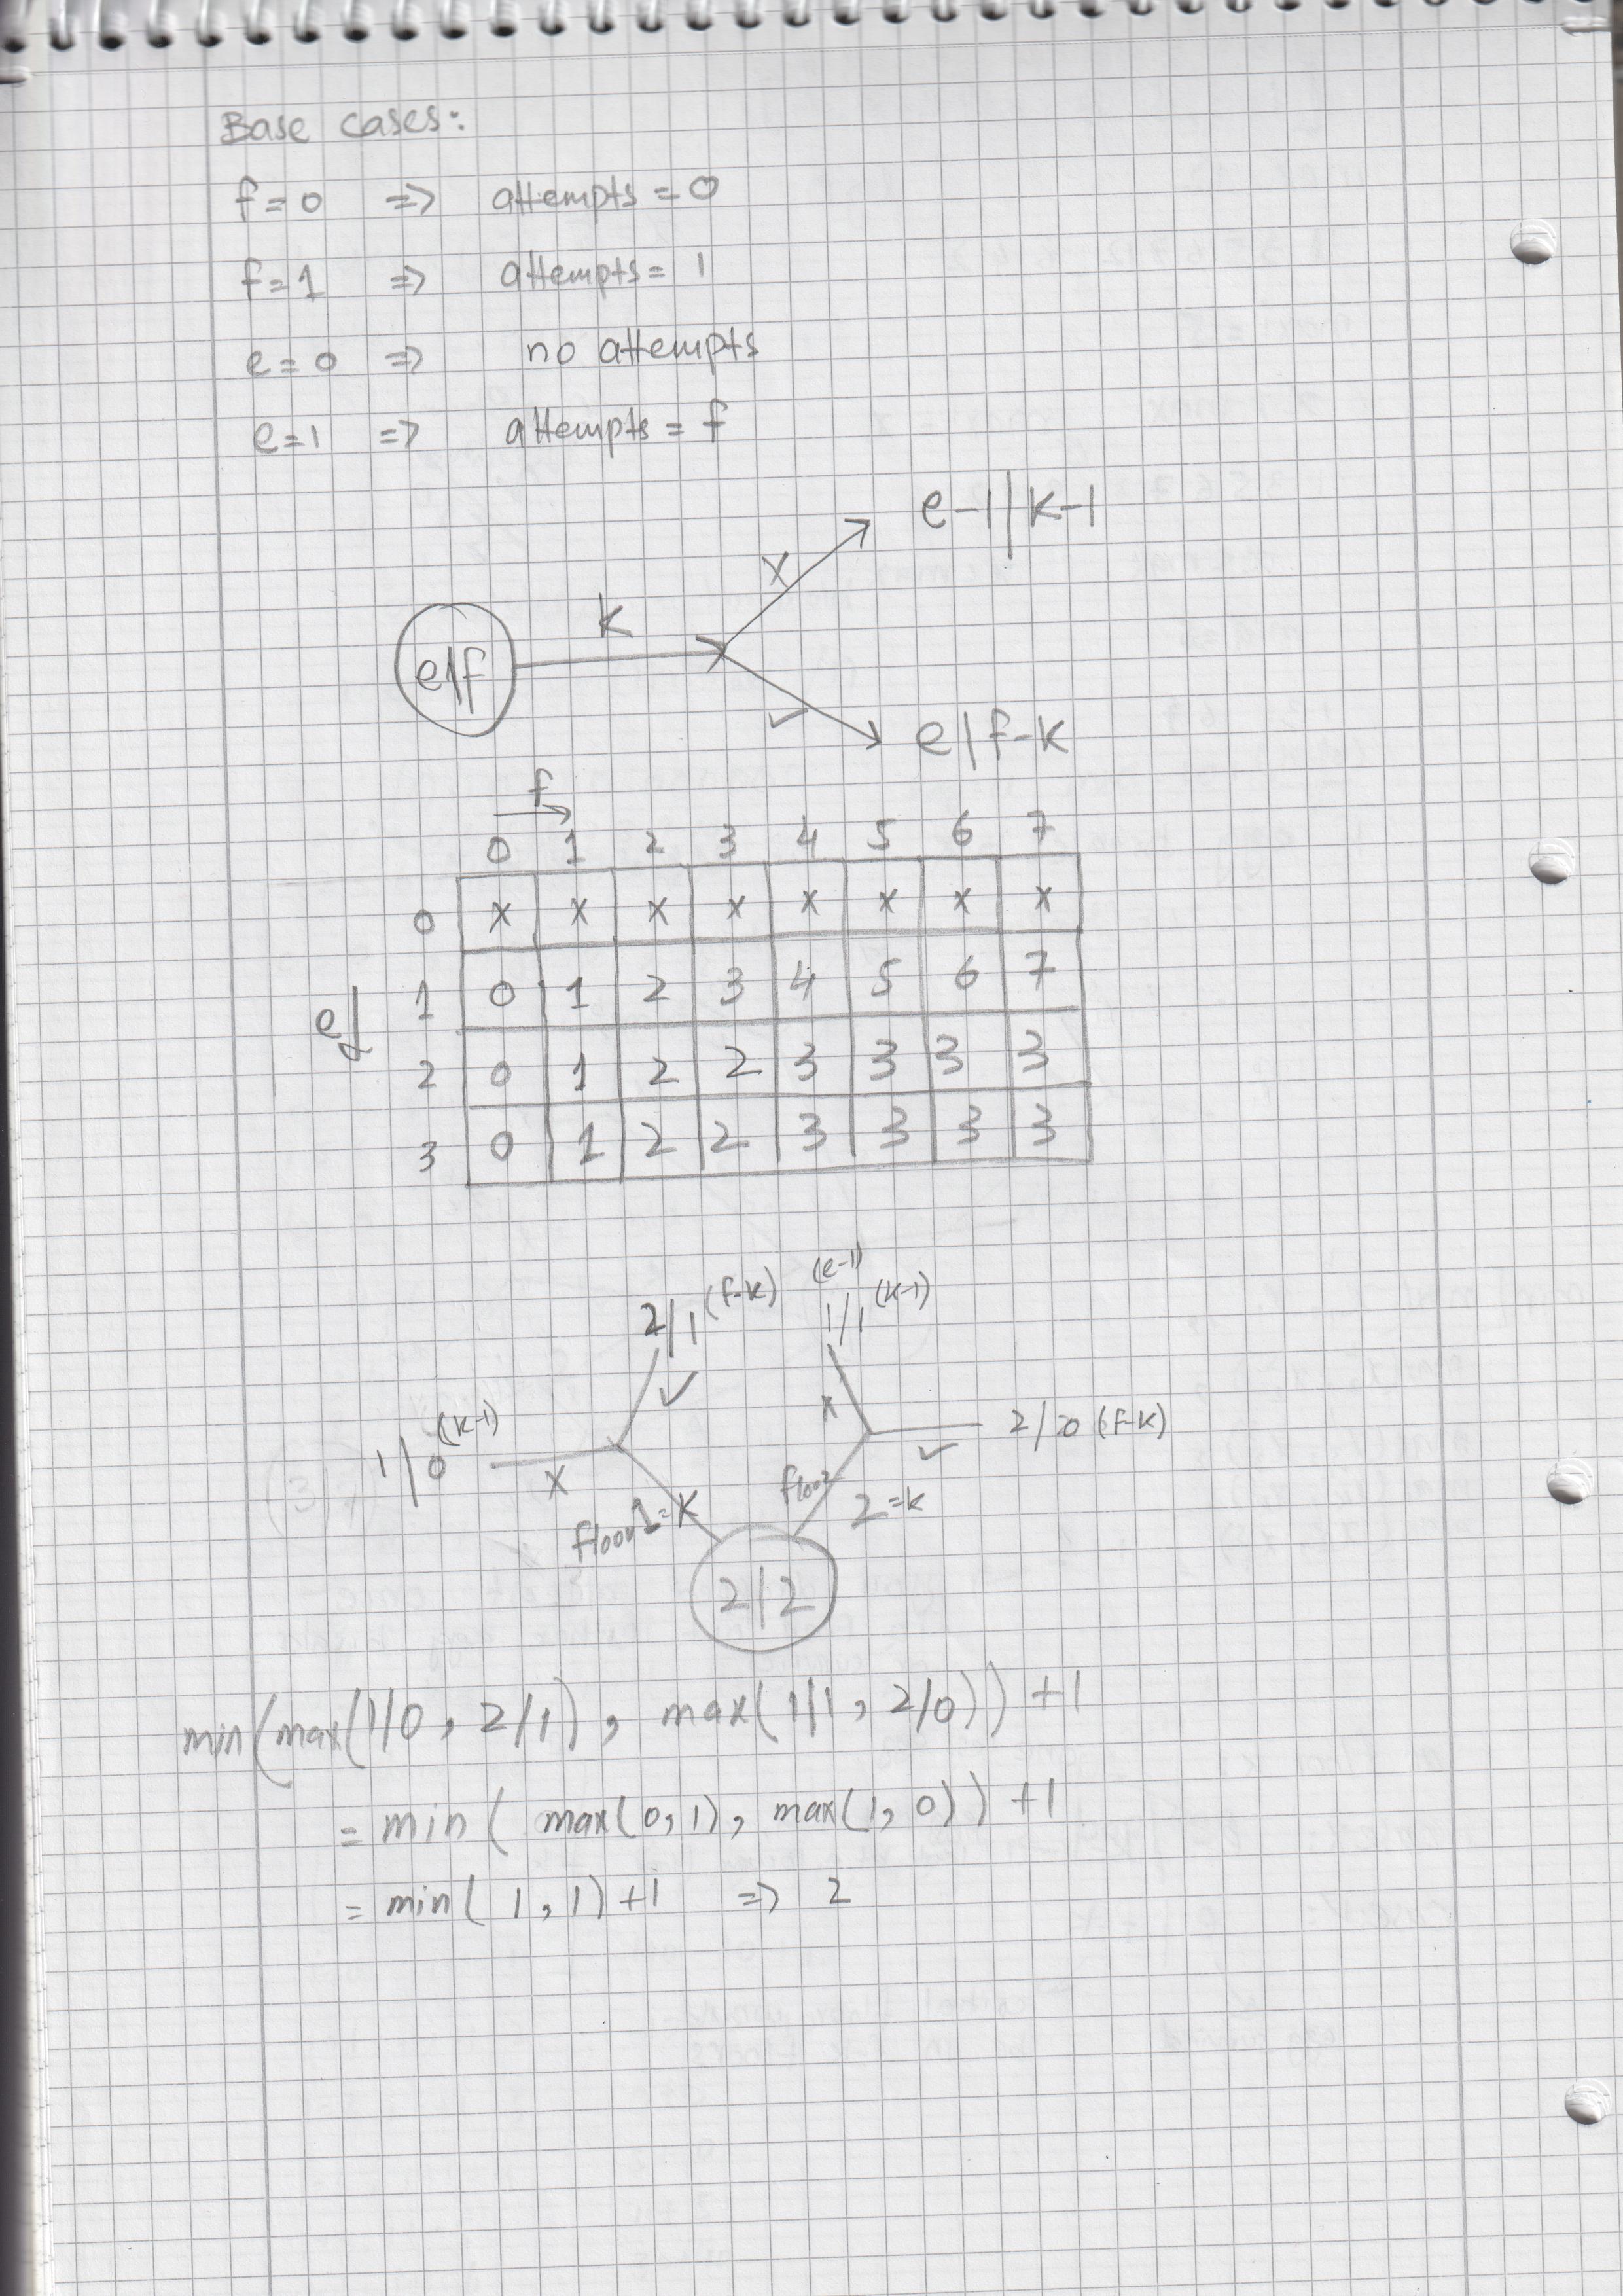 Base cases:
f=0 => attempts=0
f=1 => attempts= 1
e=0 => no attempts
e=1 => attempts = f
e-1|k-1
X
k
e|f
✓
e|f-k
f
0 1 2 3 4 5 6 7
0 x x x x x x x x
1 0 1 2 3 4 5 6 7
e
2 0 1 2 2 3 3 3 3
3 0 1 2 2 3 3 3 3
2/1 (f-k) (e-1) 1/1 (k-1)
✓
1/0 (k-1) x 2/0 (f-k)
x ✓
floor 1=k floor 2=k
2|2
min(max(1|0, 2/1), max(1|1, 2/0)) +1
= min( max(0,1), max(1,0)) +1
= min( 1,1)+1 => 2